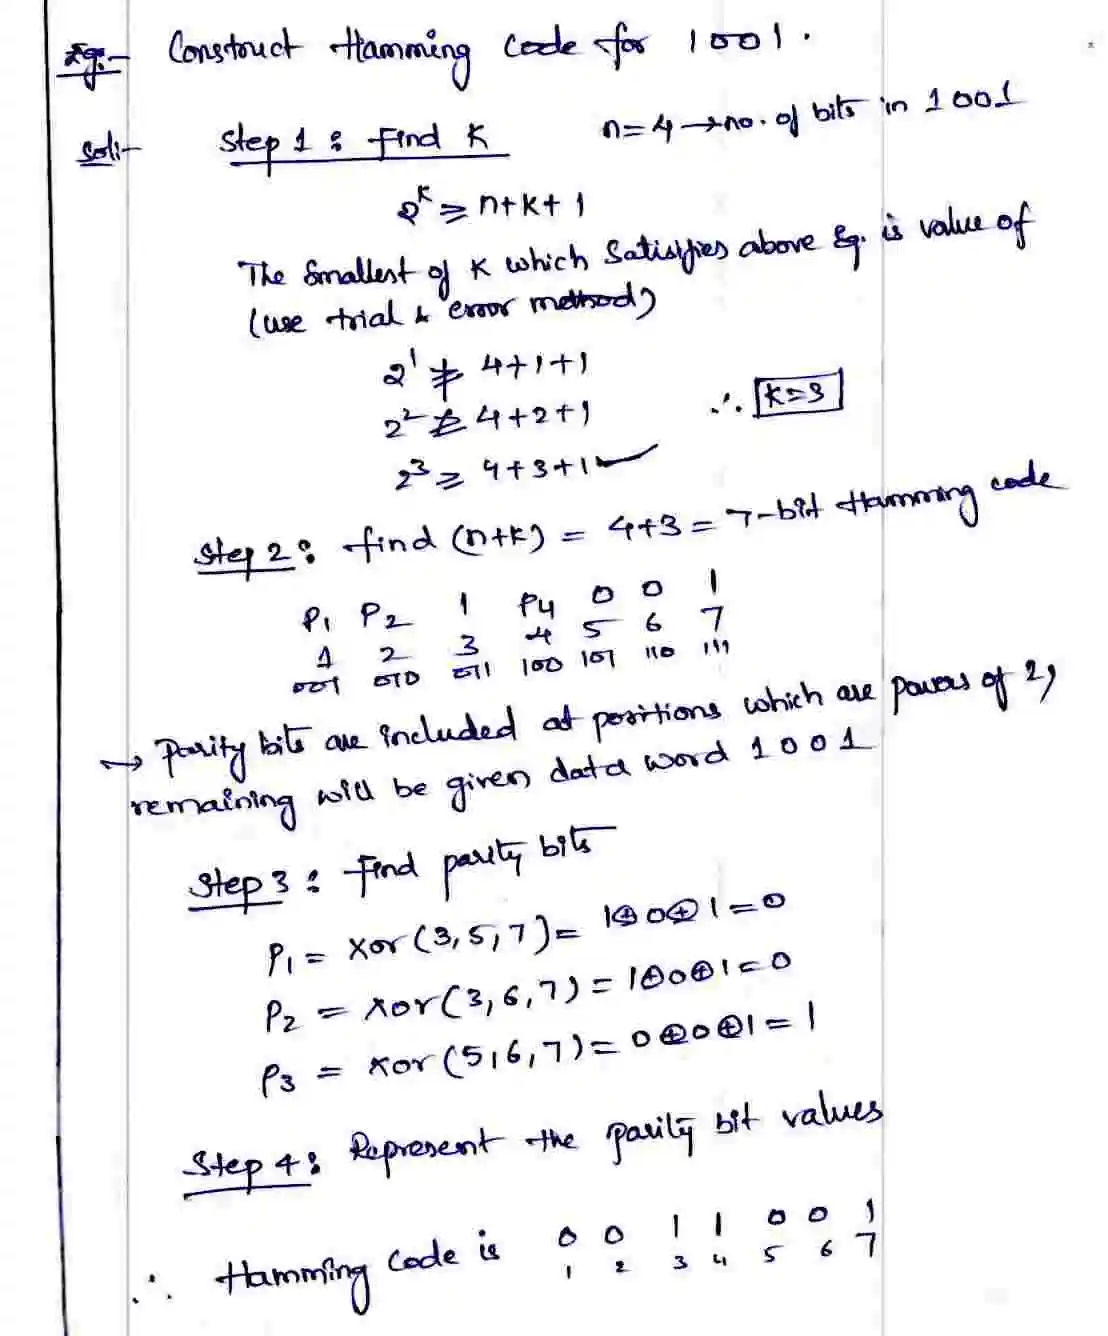 Eg:- Construct Hamming code for 1001.
Sol:- Step 1 : Find K n=4→no. of bits in 1001
2^K ≥ n+K+1
The Smallest of K which Satisfies above Eq. is value of
(use trial & error method)
2^1 ≱ 4+1+1
2^2 ≱ 4+2+1 ∴ K=3
2^3 ≥ 4+3+1 ✓
Step 2 : find (n+k) = 4+3 = 7-bit Hamming code
P1 P2 1 P4 0 0 1
1 2 3 4 5 6 7
001 010 011 100 101 110 111
→ Parity bits are included at positions which are powers of 2,
remaining will be given data word 1001
Step 3 : Find parity bits
P1 = Xor (3,5,7) = 1⊕0⊕1=0
P2 = Xor (3,6,7) = 1⊕0⊕1=0
P3 = Xor (5,6,7) = 0⊕0⊕1=1
Step 4 : Represent the parity bit values
∴ Hamming Code is 0 0 1 1 0 0 1
1 2 3 4 5 6 7